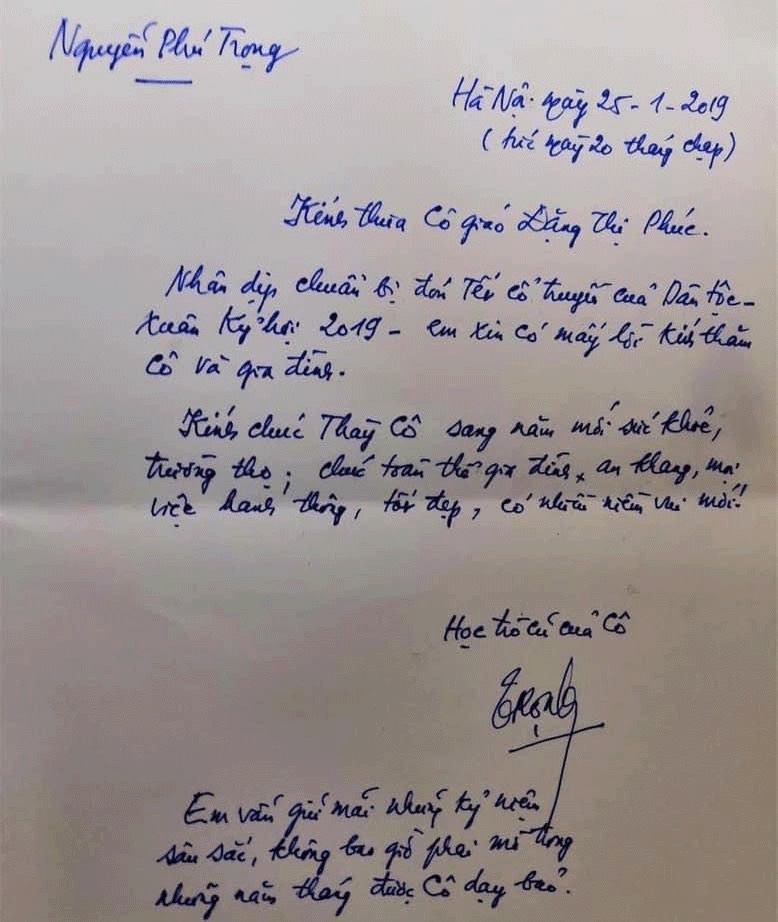 Nguyễn Phú Trọng
Hà Nội ngày 25-1-2019
(tức ngày 20 tháng chạp)
Kính thưa Cô giáo Đặng Thị Phúc.
Nhân dịp chuẩn bị đón Tết cổ truyền của Dân tộc-
Xuân Kỷ hợi 2019 - em xin có mấy lời kính thăm
Cô và gia đình.
Kính chúc Thầy Cô sang năm mới sức khoẻ,
trường thọ; chúc toàn thể gia đình an khang, mọi
việc hanh thông, tốt đẹp, có nhiều niềm vui mới.
Học trò cũ của Cô
Trọng
Em vẫn giữ mãi những kỷ niệm
sâu sắc, không bao giờ phai mờ trong
những năm tháng được Cô dạy bảo.